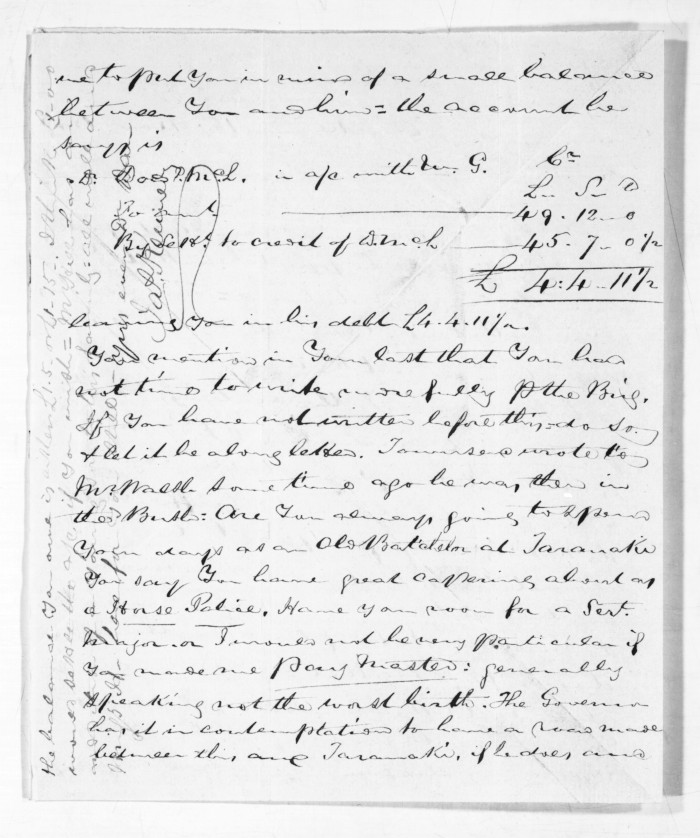 me to put You in mind of a small balance
between You and him = the account he
says is
Dr. Don. McL. in a/c with W. G. Cr
L S D
To amt 49. 12. 0
By Sett. to credit of D. McL 45. 7. 0 1/2
£ 4. 4. 11 1/2
leaving You in his debt £4. 4. 11 1/2.
You mention in Your last that You had
not time to write more fully p the Brig.
If You have not written before this, do so,
& let it be a long letter. wrote to
Mr Walsh some time ago he was then in
the Bush: Are You always going to spend
Your days as an Old Batchelor at Taranaki
You say You have great capering about as
a Horse Police. Have You room for a Sert.
Major or I would not be very particular if
You made me Pay Master: generally
speaking not the worst birth. The Governor
has it in contemplation to have a road made
between this and Taranaki, if he does and
the balance You owe is either £4.5. or 4.15.
would see the a/c if You wish = 
Yours ever